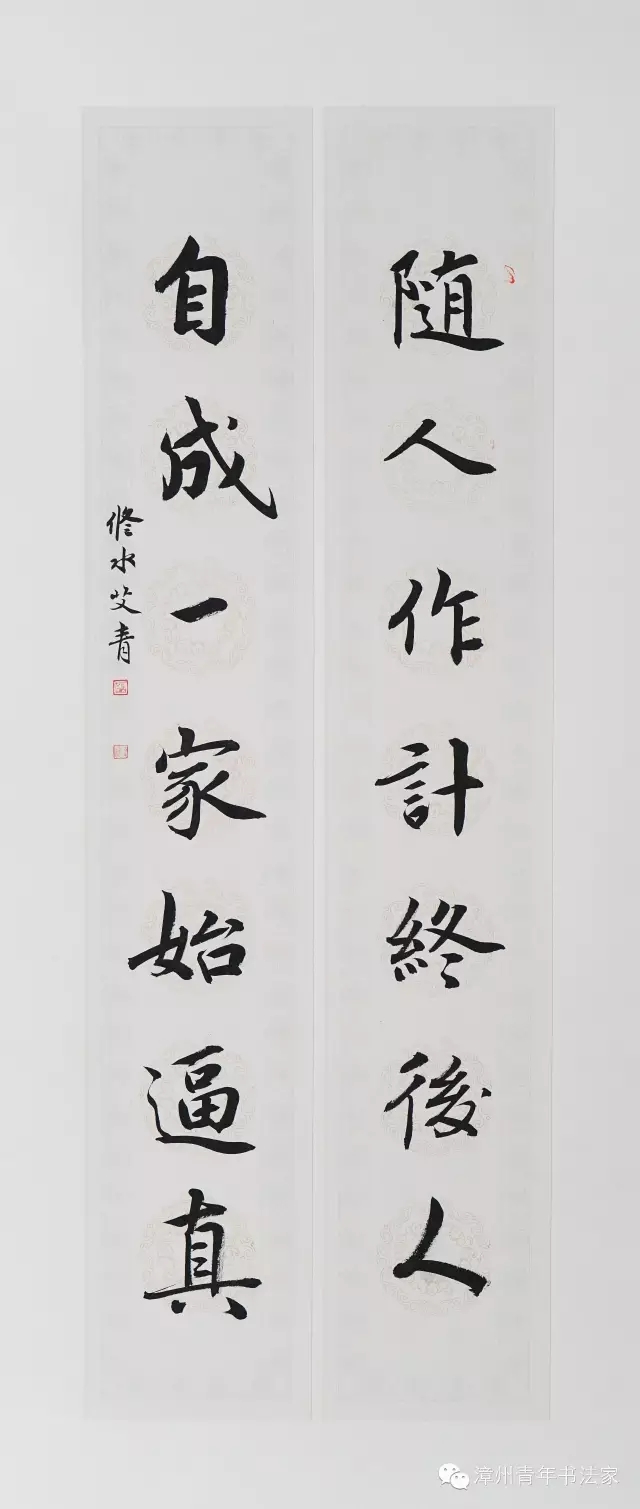 随人作計終後人
自成一家始逼真
修水艾青
漳州青年书法家